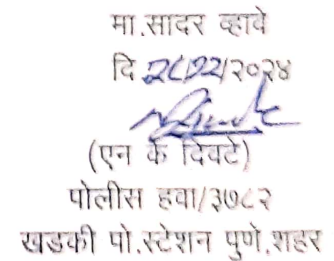 मा.सादर व्हावे
दि २८/१२/२०२४
(एन के दिवटे)
पोलीस हवा/३७८२
खडकी पो.स्टेशन पुणे.शहर